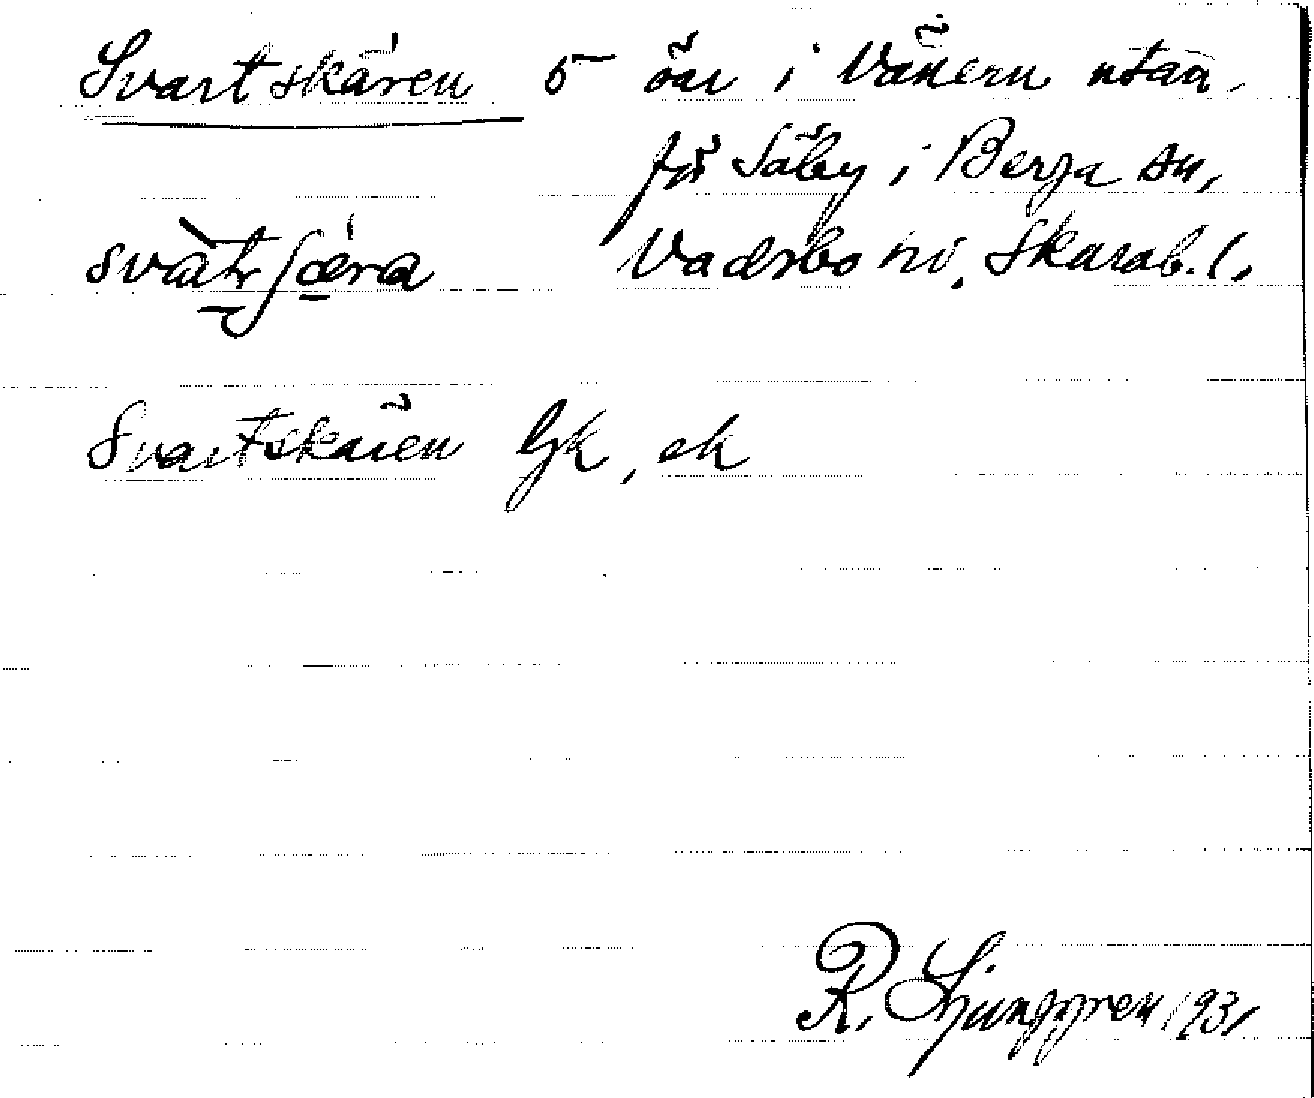 Svartskären 5 öar i Vänern utan-
för Säby i Berga sn,
Vadsbo hd, Skarab. l.
Svartskären Gk, ek
R. Ljunggren 1931